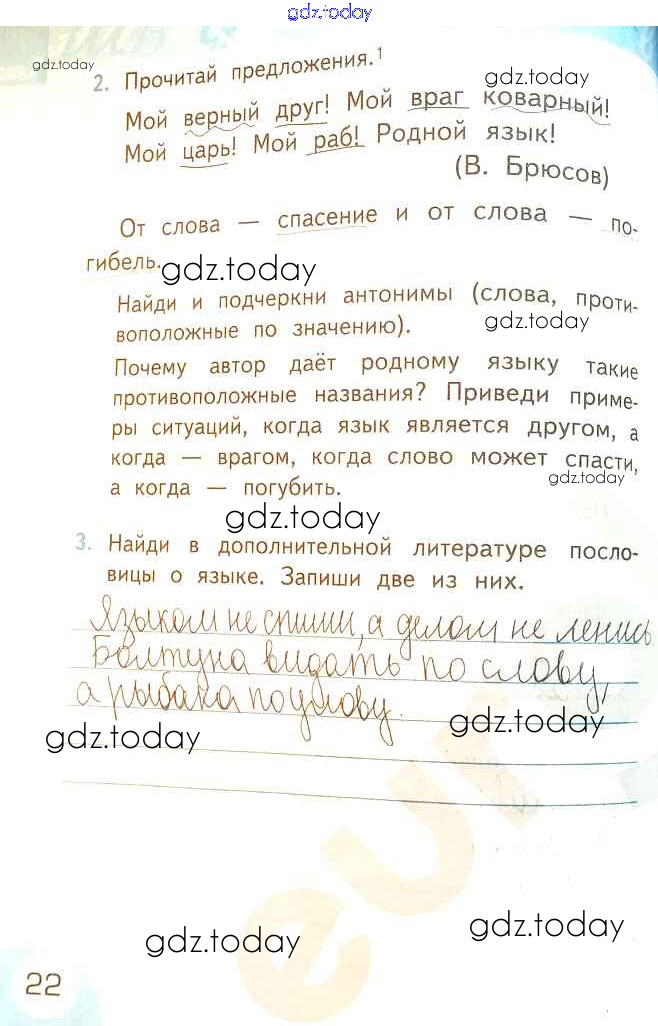 gdz.today
gdz.today
2. Прочитай предложения.¹
gdz.today
Мой верный друг! Мой враг коварный!
Мой царь! Мой раб! Родной язык!
(В. Брюсов)
От слова — спасение и от слова — по-
гибель.
gdz.today
Найди и подчеркни антонимы (слова, проти-
воположные по значению).
gdz.today
Почему автор даёт родному языку такие
противоположные названия? Приведи приме-
ры ситуаций, когда язык является другом, а
когда — врагом, когда слово может спасти,
а когда — погубить.
gdz.today
gdz.today
3. Найди в дополнительной литературе посло-
вицы о языке. Запиши две из них.
Языком не спиши, а делом не ленись
Болтуна видать по слову,
а рыбака по улову.
gdz.today
gdz.today
eur
gdz.today
gdz.today
22